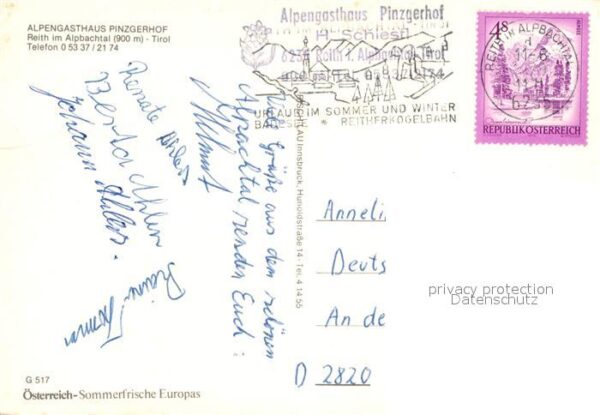 ALPENGASTHAUS PINZGERHOF
Reith im Alpbachtal (900 m) - Tirol
Telefon 0 53 37 / 21 74
Alpengasthaus Pinzgerhof
H. Schiestl
6235 Reith i. Alpbachtal, Tirol
URLAUB IM SOMMER UND WINTER
BADESEE * REITHERKOGELBAHN
REITH IM ALPBACHTAL
11.-6.
4S
REPUBLIK ÖSTERREICH
Viele Grüße aus dem schönen
Alpachtal senden Euch:
Helmut
Renate
Berta Ahlers
Johann Ahlers.
Innsbruck, Hunoldstraße 14 - Tel. 4 14 55
Anneli
Deuts
An de
D 2820
privacy protection
Datenschutz
G 517
Österreich-Sommerfrische Europas